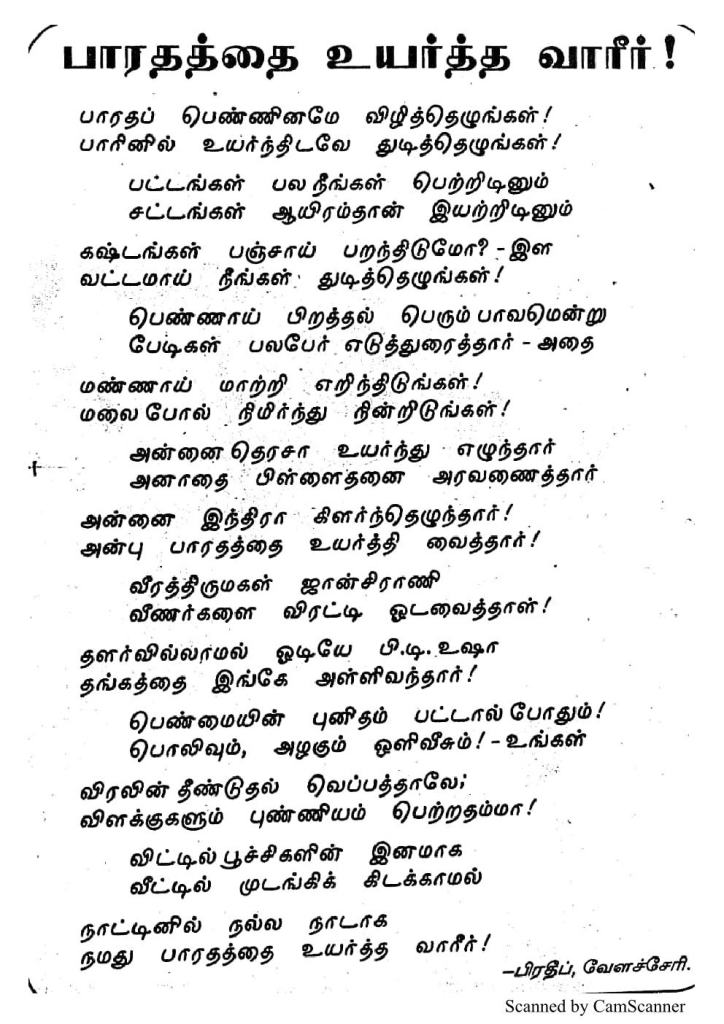 பாரதத்தை உயர்த்த வாரீர்!
பாரதப் பெண்ணினமே விழித்தெழுங்கள்!
பாரினில் உயர்ந்திடவே துடித்தெழுங்கள்!
பட்டங்கள் பல நீங்கள் பெற்றிடினும்
சட்டங்கள் ஆயிரம்தான் இயற்றிடினும்
கஷ்டங்கள் பஞ்சாய் பறந்திடுமோ? - இள
வட்டமாய் நீங்கள் துடித்தெழுங்கள்!
பெண்ணாய் பிறத்தல் பெரும் பாவமென்று
பேடிகள் பலபேர் எடுத்துரைத்தார் - அதை
மண்ணாய் மாற்றி எறிந்திடுங்கள்!
மலை போல் நிமிர்ந்து நின்றிடுங்கள்!
அன்னை தெரசா உயர்ந்து எழுந்தார்
அனாதை பிள்ளைதனை அரவணைத்தார்
அன்னை இந்திரா கிளர்ந்தெழுந்தார்!
அன்பு பாரதத்தை உயர்த்தி வைத்தார்!
வீரத்திருமகள் ஜான்சிராணி
வீணர்களை விரட்டி ஓடவைத்தாள்!
தளர்வில்லாமல் ஓடியே பி.டி. உஷா
தங்கத்தை இங்கே அள்ளிவந்தார்!
பெண்மையின் புனிதம் பட்டால் போதும்!
பொலிவும், அழகும் ஒளிவீசும்! - உங்கள்
விரலின் தீண்டுதல் வெப்பத்தாலே;
விளக்குகளும் புண்ணியம் பெற்றதம்மா!
விட்டில் பூச்சிகளின் இனமாக
வீட்டில் முடங்கிக் கிடக்காமல்
நாட்டினில் நல்ல நாடாக
நமது பாரதத்தை உயர்த்த வாரீர்!
-பிரதீப், வேளச்சேரி.
Scanned by CamScanner